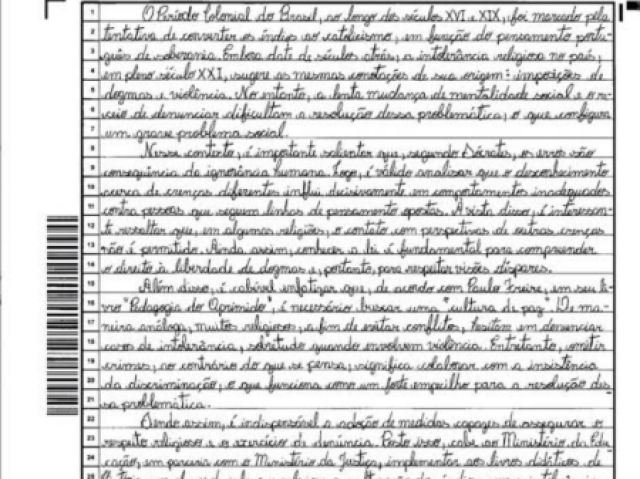 O Período Colonial do Brasil, ao longo dos séculos XVI e XIX, foi marcado pela
tentativa de converter os índios ao catolicismo, em função do pensamento portu-
guês de soberania. Embora date de séculos atrás, a intolerância religiosa no país,
em pleno século XXI, sugere as mesmas conotações de sua origem: imposições de
dogmas e violência. No entanto, a lenta mudança de mentalidade social e o re-
ceio de denunciar dificultam a resolução dessa problemática, o que configura
um grave problema social.
Nesse contexto, é importante salientar que, segundo Sócrates, os erros são
consequência da ignorância humana. Logo, é válido analisar que o desconhecimento
acerca de crenças diferentes influi decisivamente em comportamentos inadequados
contra pessoas que seguem linhas de pensamento opostas. À vista disso, é interessan-
te ressaltar que, em algumas religiões, o contato com perspectivas de outras crenças
não é permitido. Ainda assim, conhecer a lei é fundamental para compreender
o direito à liberdade de dogmas e, portanto, para respeitar visões díspares.
Além disso, é cabível enfatizar que, de acordo com Paulo Freire, em seu li-
vro "Pedagogia do Oprimido", é necessário buscar uma "cultura de paz". De ma-
neira análoga, muitos religiosos, a fim de evitar conflitos, hesitam em denunciar
casos de intolerância, sobretudo quando envolvem violência. Entretanto, omitir
crimes, ao contrário do que se pensa, significa colaborar com a insistência
da discriminação, o que funciona como um forte empecilho para a resolução des-
sa problemática.
Sendo assim, é indispensável a adoção de medidas capazes de assegurar o
respeito religioso e o exercício de denúncia. Posto isso, cabe ao Ministério da Edu-
cação, em parceria com o Ministério da Justiça, implementar aos livros didáticos de